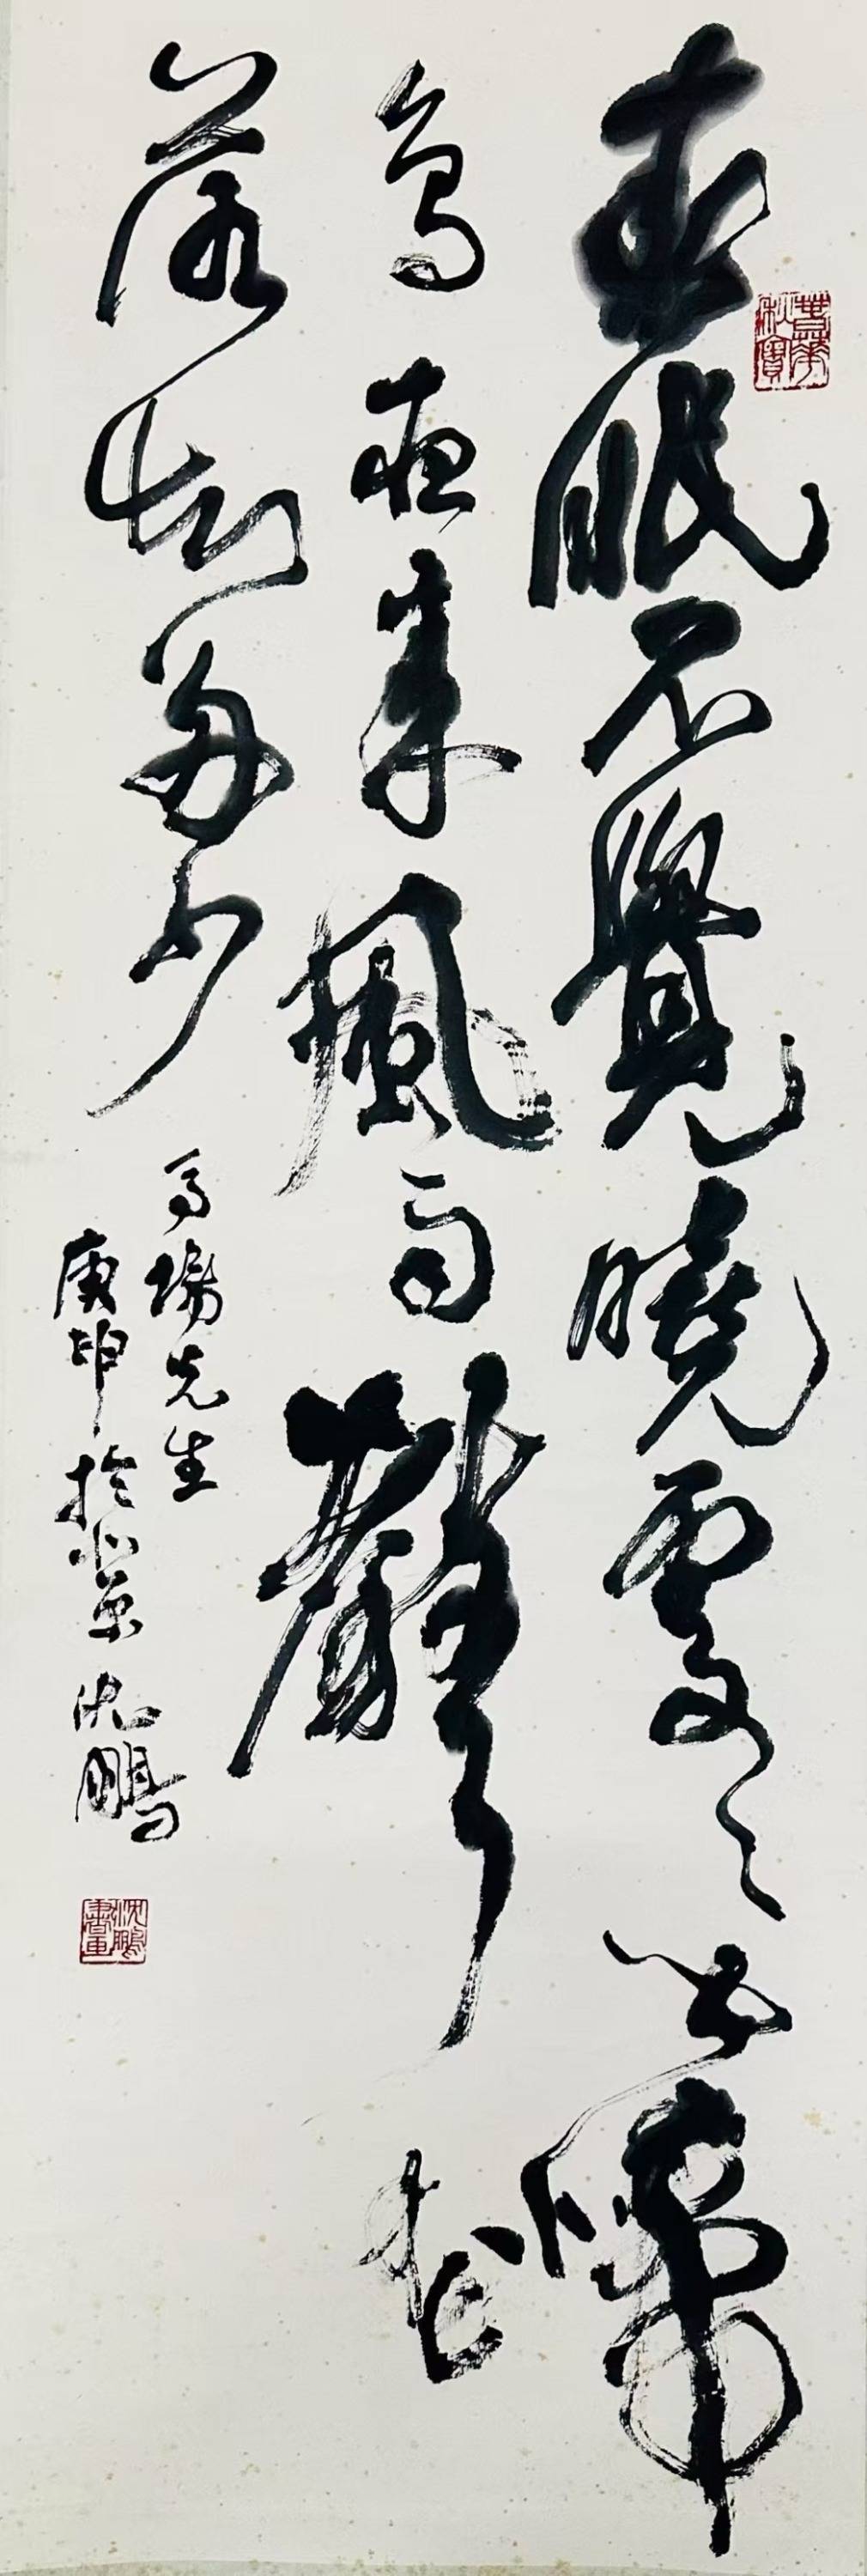 春眠不覺曉處々聞啼
鳥夜來風雨聲花
落知多少
馬場先生
庚申於北京沈鵬
春華秋實
沈鵬書畫